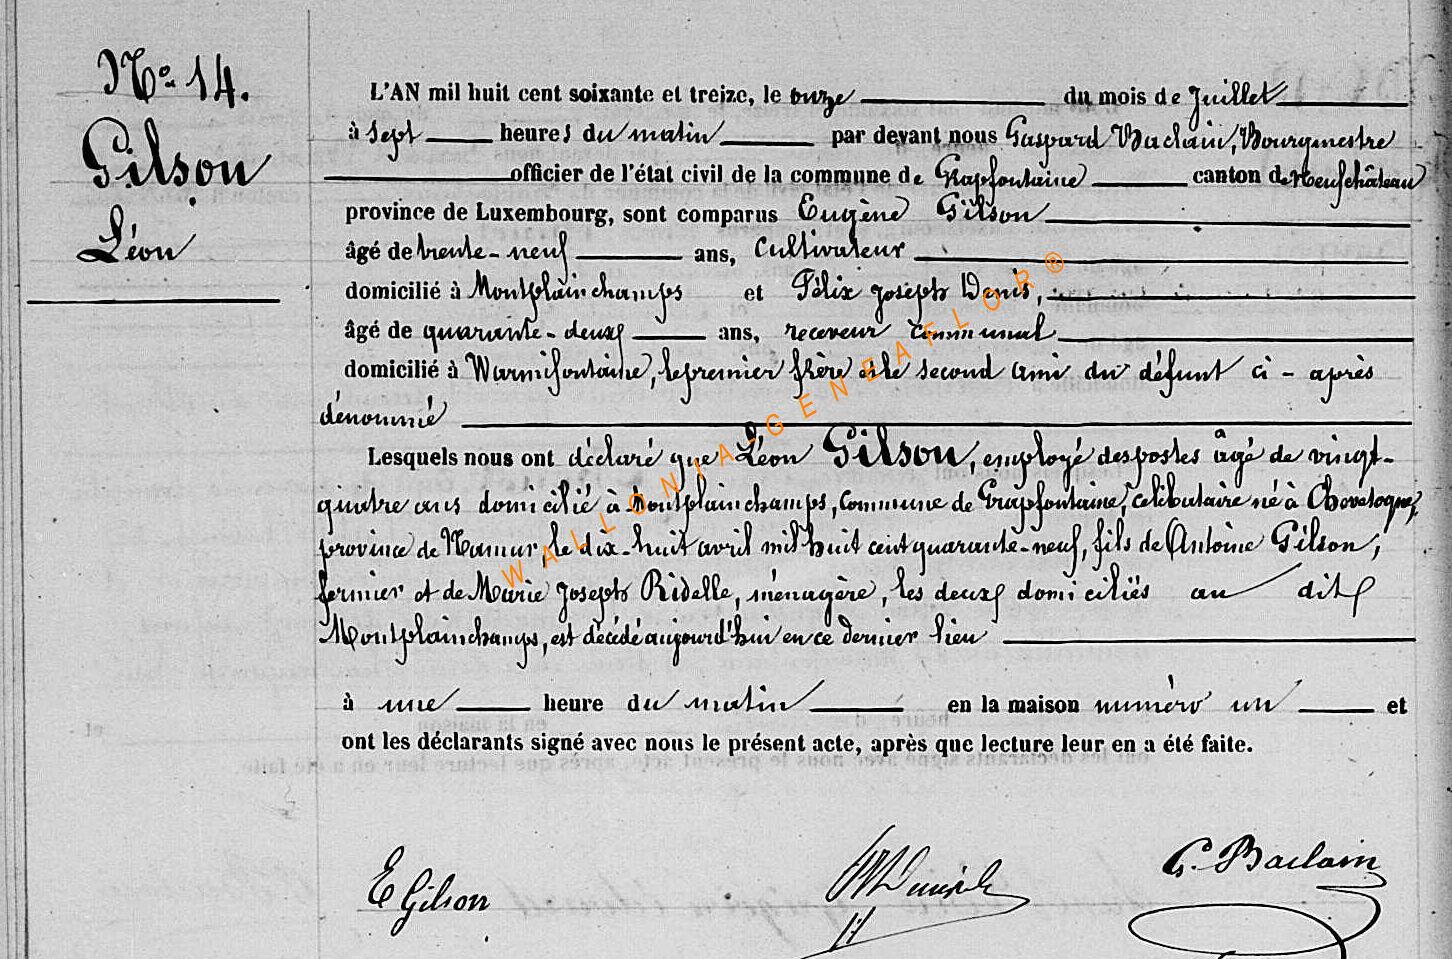 No. 14.
Gilson
Léon
L'AN mil huit cent soixante et treize, le onze du mois de juillet
à sept heures du matin par devant nous Gaspard Baclain, Bourgmestre
officier de l'état civil de la commune de Grapfontaine canton de Neufchâteau
province de Luxembourg, sont comparus Eugène Gilson
âgé de trente-neuf ans, cultivateur
domicilié à Montplainchamps et Félix Joseph Denis,
âgé de quarante-deux ans, receveur communal
domicilié à Warmifontaine, le premier frère et le second ami du défunt ci-après
dénommé
Lesquels nous ont déclaré que Léon Gilson, employé des postes âgé de vingt-
quatre ans domicilié à Montplainchamps, commune de Grapfontaine, célibataire né à
province de Namur, le dix-huit avril mil huit cent quarante-neuf, fils de Antoine Gilson,
fermier et de Marie Joseph Ridelle, ménagère, les deux domiciliés au dit
Montplainchamps, est décédé aujourd'hui en ce dernier lieu
à une heure du matin en la maison numéro un et
ont les déclarants signé avec nous le présent acte, après que lecture leur en a été faite.
E Gilson
G. Baclain
WALLONIA-GENEAFLOR®